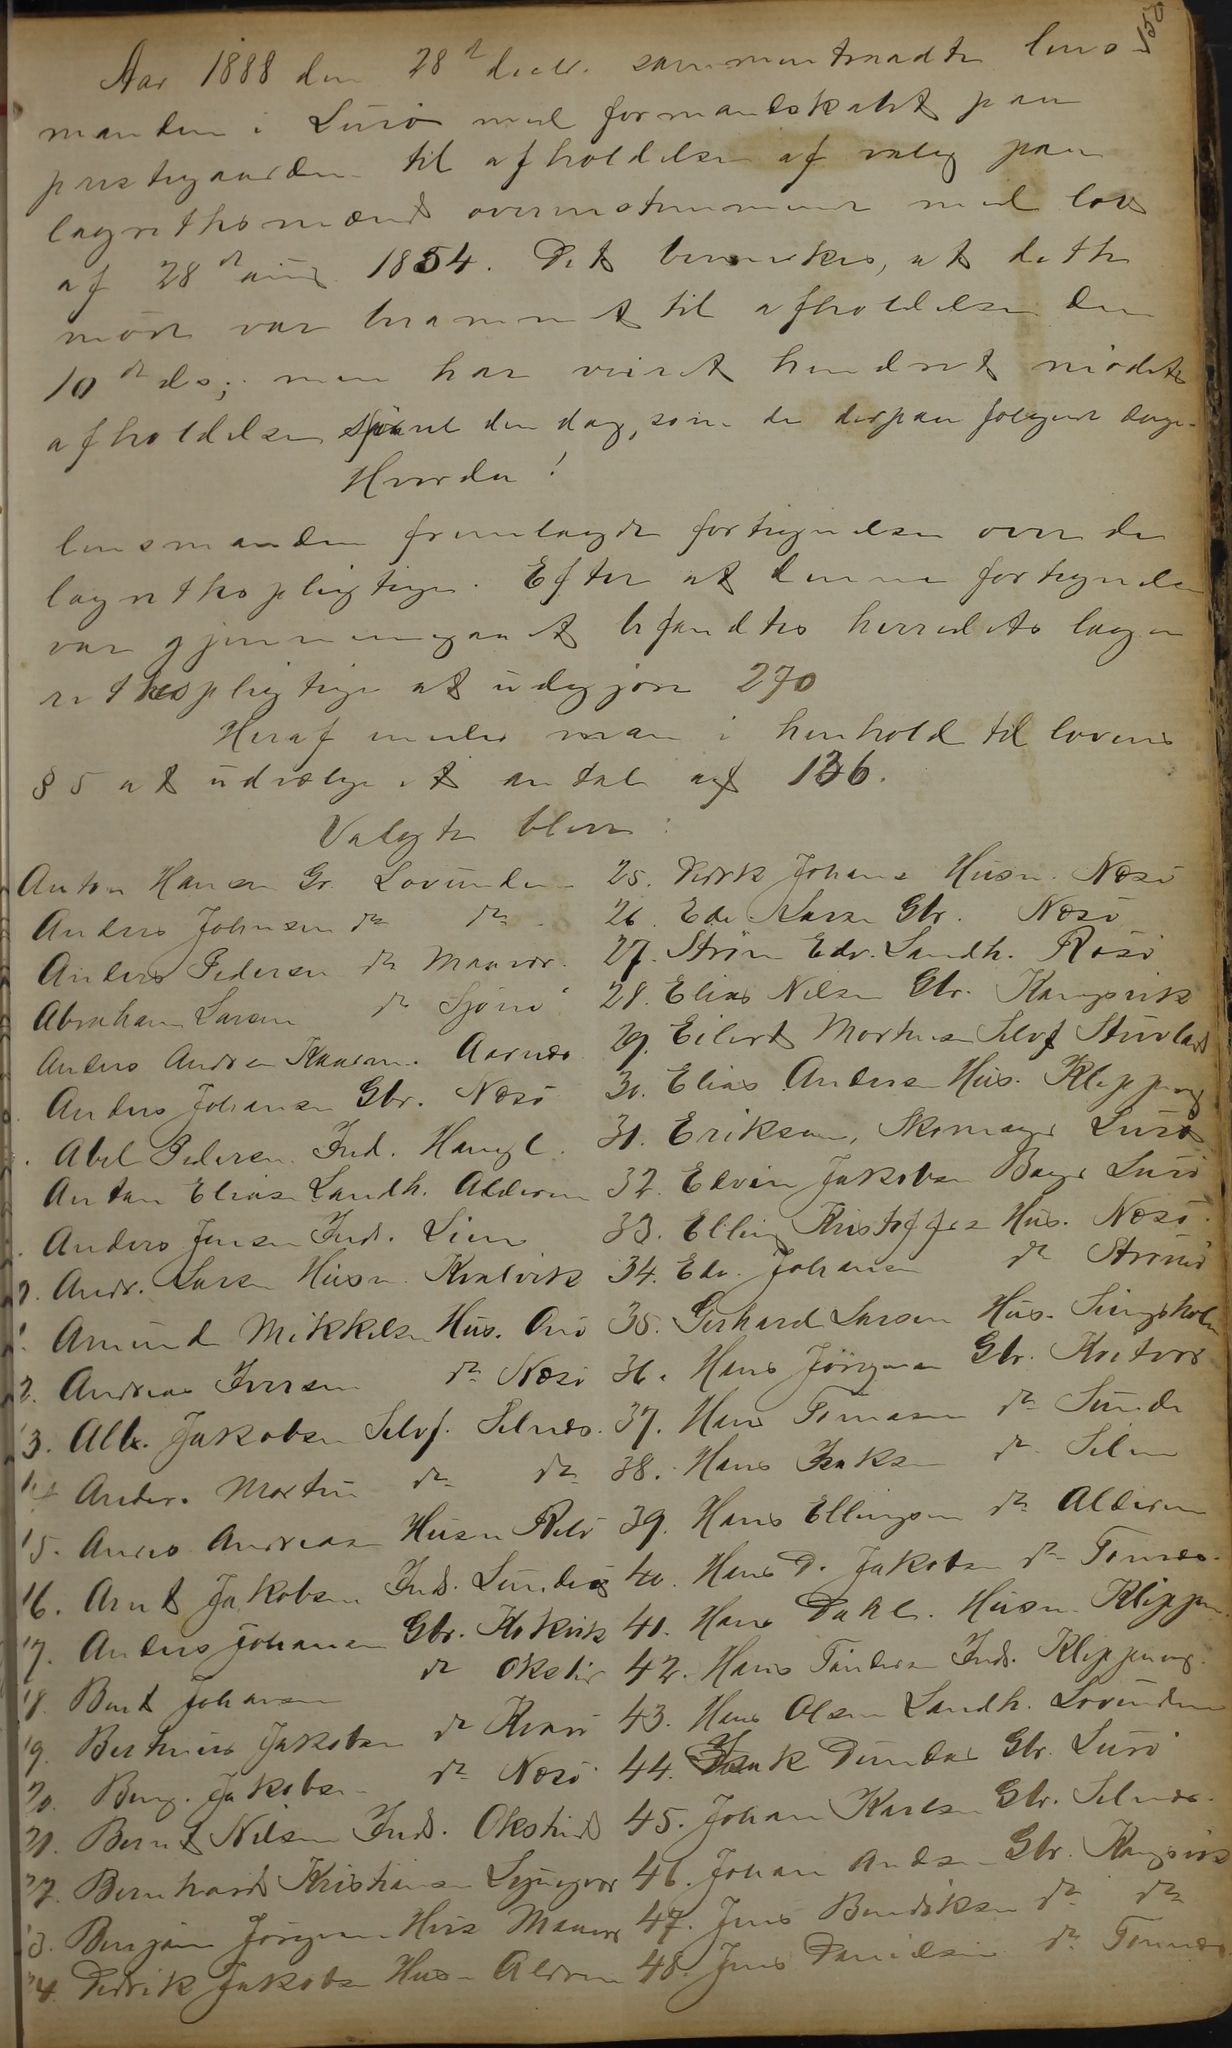 Aar 1888 den 28de decbr. sammentraadte lens-
manden i Lurö med formandskabet paa
prestegaarden til afholdelse af valg paa
lagrethsmænd overenstemmende med lov
af 28de aug 1854. Det bemerkes, at dette
möde var berammet til afholdelse den
10de ds; men har veiret hendret mödets
afholdelse saavel den dag, som de derpaa fölgende dage.
Hvorda!
lensmanden fremlagde fortegnelse over de
lagrethspligtige. Efter at denne fortegnelse
var gjennemgaaet befandtes herredets lag-
rethspligtige at udgjöre 270
Heraf  man i henhold til lovens
§ 5 at udvælge et antal af 136.
Valgte blev:
Anton Hansen Gr. Lovunden
Anders Johnsen do do
Anders Pedersen do Maavær.
Abraham Larsen do Sjönö
Anders Andrea Kaarm. Aarnes
Anders Johansen Gbr. Næsö
Abel Pedersen Ind. Haugl.
Antan Eliasen Landh. Alderen
Anders Jensen Ind. Lien
Andr. Larsen Husm. Kvalvik
Amund Mikkelsen Hus. Onö
2. Andreas Iversen do Næsö
13. Alb. Jakobsen Selvf. Selnæs.
14 Anders. Martin do do
15. Anders Andreasen Husm Relö
16. Arnt Jakobsen Ind. Lunderö
17. Anders Johansen Gbr. Kokvik
18. Bernt Johansen do Okstin
19. Berthins Jakobsen do Kvarö
20. Beng. Jakobsen do Næsö
21. Bernt Nilsen Ind. Okstind
22. Bernhard Kristiansen Lyngvær
23. Benjam Jörgensen Hus Maavær
24. Dedrik Jakobsen Hus- Alderen
25. Dedrk Johans Husm. Næsö
26. Edv. Larsen Gbr. Næsö
27. Ström Edv. Landh. Rösö
28. Elias Nilsen Gbr. Kangsvik
29. Eilert Mortensen Selvf Stuvland
30. Elias Andersen Hus. Kleppeng
31. Eriksen, Skomager Lurö
32. Edvin Jakobsen Bager Lurö
33. Elling Kristoffersen Hus. Næsö.
34. Edv. Johansen do Strönö
35. Gerhard Larsen Hus. Lingsholm
36. Hans Jörgensen Gbr. Kvitvær
37. Hans Tomasen do Sunde
38. Hans Isaksen do Selnæ
39. Hans Ellingsen do Alderen
40. Hans D. Jakobsen do Tonnes.
41. Hans Dahl. Husm Kleppen
42. Hans Tönder Ind. Kleppeng.
43. Hans Olsen Landh. Lovunden
44. Isak Dundas Gbr. Lurö
45. Johan Karlsen Gbr. Selnæs.
46. Johan Andersen Gbr. Kangsvik
47. Jens Bendiksen do do
48. Jens Danielsen do Tonnes